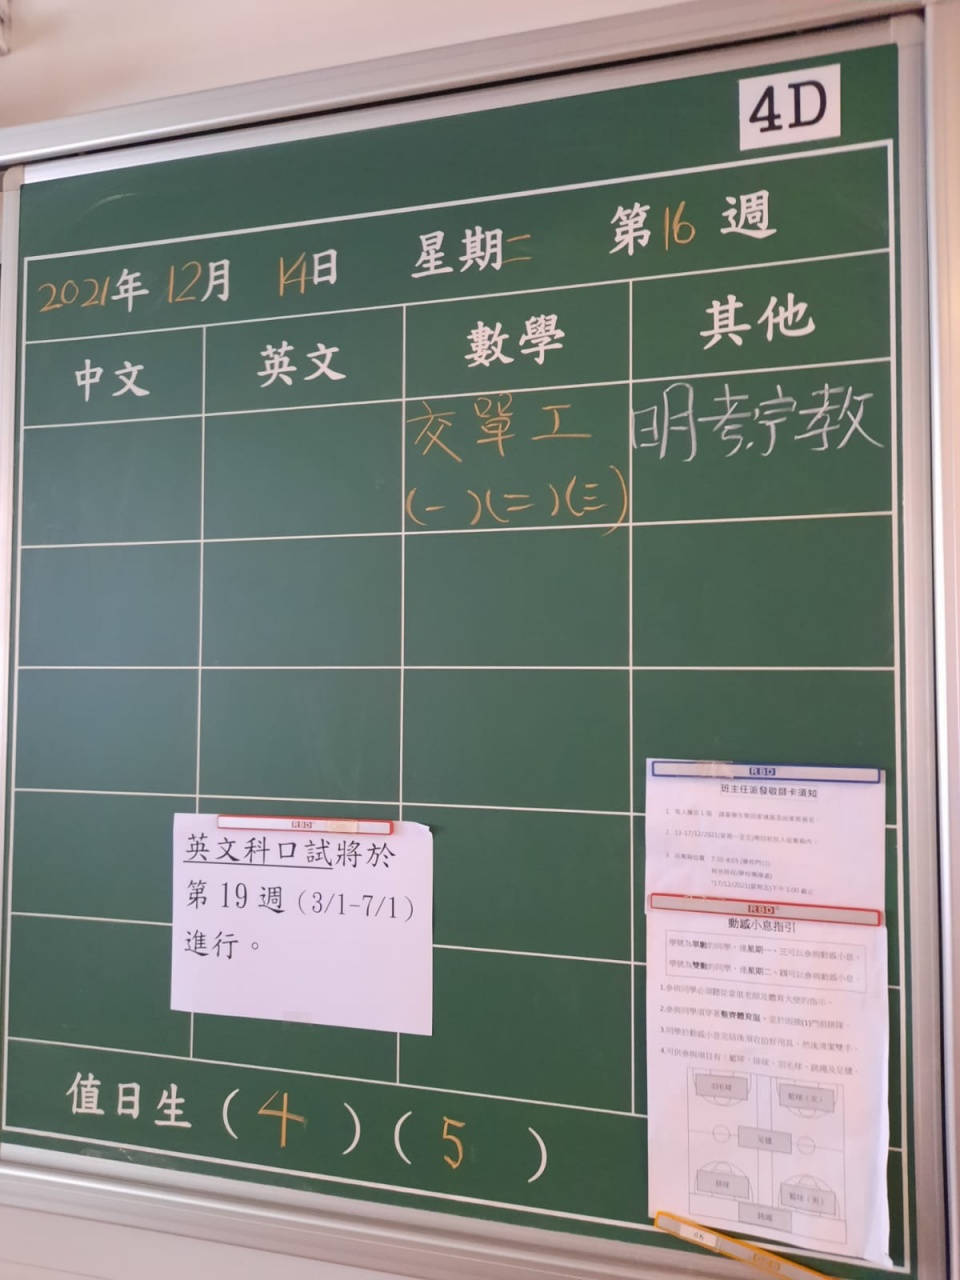 4D
2021年 12月 14日 星期二 第16週
中文 英文 數學 其他
交單工
(一)(二)(三)
明考宗教
RBD
英文科口試將於
第 19 週 (3/1-7/1)
進行。
值日生 (4) (5)
RBD
班主任派發敬師卡須知
RBD
動感小息指引
學號為單數的同學，逢星期一、三可以參與動感小息。
學號為雙數的同學，逢星期二、四可以參與動感小息。
1.參與同學必須聽從當值老師及體育大使的指示。
羽毛球
籃球（女）
足毽
排球
籃球（男）
跳繩